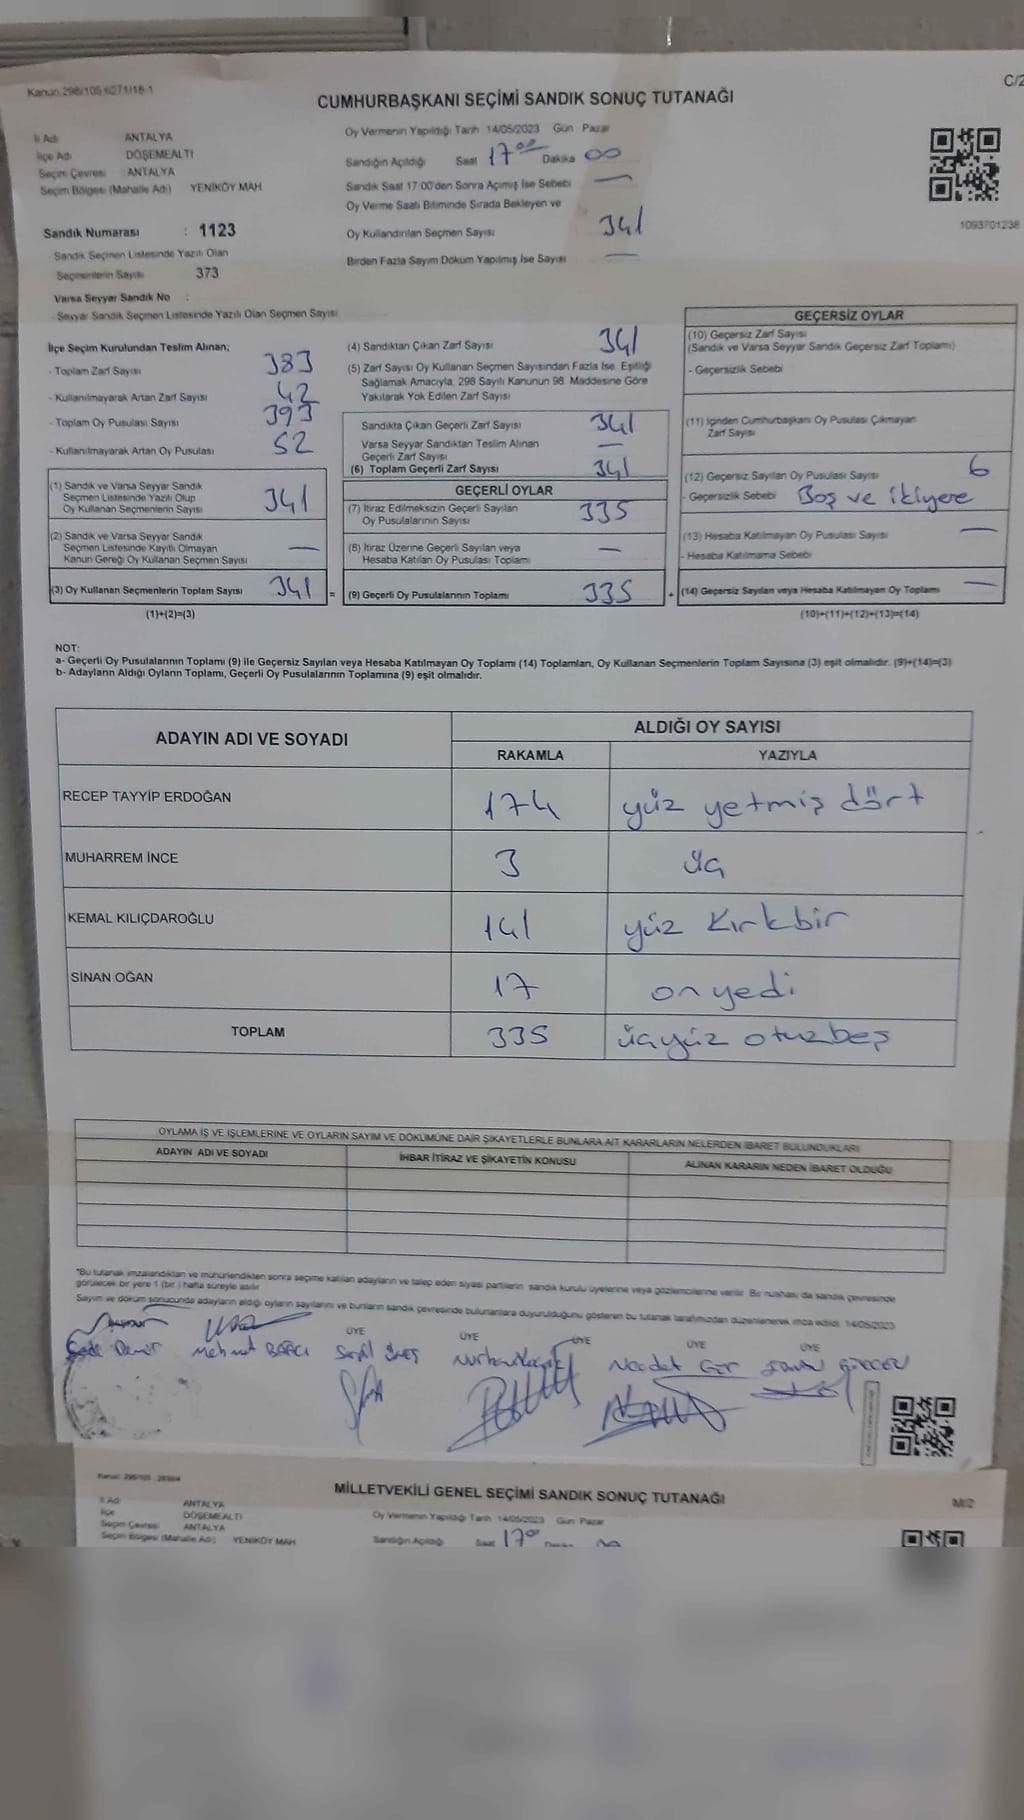 Kanun 298/105 6271/18-1
C/2
CUMHURBAŞKANI SEÇİMİ SANDIK SONUÇ TUTANAĞI
İl Adı ANTALYA
İlçe Adı DÖŞEMEALTI
Seçim Çevresi : ANTALYA
Seçim Bölgesi (Mahalle Adı) YENİKÖY MAH.
Sandık Numarası : 1123
Sandık Seçmen Listesinde Yazılı Olan
Seçmenlerin Sayısı 373
Varsa Seyyar Sandık No :
- Seyyar Sandık Seçmen Listesinde Yazılı Olan Seçmen Sayısı
Oy Vermenin Yapıldığı Tarih 14/05/2023 Gün Pazar
Sandığın Açıldığı Saat 17 00 Dakika 00
Sandık Saat 17:00'den Sonra Açılmış İse Sebebi —
Oy Verme Saati Bitiminde Sırada Bekleyen ve
Oy Kullandırılan Seçmen Sayısı 341
Birden Fazla Sayım Döküm Yapılmış İse Sayısı —
1093701238
İlçe Seçim Kurulundan Teslim Alınan;
- Toplam Zarf Sayısı 383
- Kullanılmayarak Artan Zarf Sayısı 42
- Toplam Oy Pusulası Sayısı 393
- Kullanılmayarak Artan Oy Pusulası 52
(1) Sandık ve Varsa Seyyar Sandık
Seçmen Listesinde Yazılı Olup
Oy Kullanan Seçmenlerin Sayısı 341
(2) Sandık ve Varsa Seyyar Sandık
Seçmen Listesinde Kayıtlı Olmayan
Kanun Gereği Oy Kullanan Seçmen Sayısı —
(3) Oy Kullanan Seçmenlerin Toplam Sayısı 341 =
(1)+(2)=(3)
(4) Sandıktan Çıkan Zarf Sayısı 341
(5) Zarf Sayısı Oy Kullanan Seçmen Sayısından Fazla İse, Eşitliği
Sağlamak Amacıyla, 298 Sayılı Kanunun 98. Maddesine Göre
Yakılarak Yok Edilen Zarf Sayısı
Sandıkta Çıkan Geçerli Zarf Sayısı 341
Varsa Seyyar Sandıktan Teslim Alınan
Geçerli Zarf Sayısı —
(6) Toplam Geçerli Zarf Sayısı 341
GEÇERLİ OYLAR
(7) İtiraz Edilmeksizin Geçerli Sayılan
Oy Pusulalarının Sayısı 335
(8) İtiraz Üzerine Geçerli Sayılan veya
Hesaba Katılan Oy Pusulası Toplamı —
(9) Geçerli Oy Pusulalarının Toplamı 335 +
GEÇERSİZ OYLAR
(10) Geçersiz Zarf Sayısı
(Sandık ve Varsa Seyyar Sandık Geçersiz Zarf Toplamı)
- Geçersizlik Sebebi
(11) İçinden Cumhurbaşkanı Oy Pusulası Çıkmayan
Zarf Sayısı
(12) Geçersiz Sayılan Oy Pusulası Sayısı 6
- Geçersizlik Sebebi Boş ve ikiyere
(13) Hesaba Katılmayan Oy Pusulası Sayısı —
- Hesaba Katılmama Sebebi
(14) Geçersiz Sayılan veya Hesaba Katılmayan Oy Toplamı —
(10)+(11)+(12)+(13)=(14)
NOT:
a- Geçerli Oy Pusulalarının Toplamı (9) ile Geçersiz Sayılan veya Hesaba Katılmayan Oy Toplamı (14) Toplamları, Oy Kullanan Seçmenlerin Toplam Sayısına (3) eşit olmalıdır. (9)+(14)=(3)
b- Adayların Aldığı Oyların Toplamı, Geçerli Oy Pusulalarının Toplamına (9) eşit olmalıdır.
ADAYIN ADI VE SOYADI
ALDIĞI OY SAYISI
RAKAMLA YAZIYLA
RECEP TAYYİP ERDOĞAN 174 yüz yetmiş dört
MUHARREM İNCE 3 üç
KEMAL KILIÇDAROĞLU 141 yüz kırkbir
SİNAN OĞAN 17 onyedi
TOPLAM 335 üçyüz otuzbeş
OYLAMA İŞ VE İŞLEMLERİNE VE OYLARIN SAYIM VE DÖKÜMÜNE DAİR ŞİKAYETLERLE BUNLARA AİT KARARLARIN NELERDEN İBARET BULUNDUKLARI
ADAYIN ADI VE SOYADI İHBAR İTİRAZ VE ŞİKAYETİN KONUSU ALINAN KARARIN NEDEN İBARET OLDUĞU
*Bu tutanak imzalandıktan ve mühürlendikten sonra seçime katılan adayların ve talep eden siyasi partilerin sandık kurulu üyelerine veya gözlemcilerine verilir. Bir nushası da sandık çevresinde
görülecek bir yere 1 (bir) hafta süreyle asılır
Sayım ve döküm sonucunda adayların aldığı oyların sayılarını ve bunların sandık çevresinde bulunanlara duyurulduğunu gösteren bu tutanak tarafımızdan düzenlenerek imza edildi. 14/05/2023
ÜYE ÜYE ÜYE ÜYE ÜYE
Mehmet BAĞCI
Kanun 298/105
M/2
MİLLETVEKİLİ GENEL SEÇİMİ SANDIK SONUÇ TUTANAĞI
İl Adı ANTALYA
İlçe DÖŞEMEALTI
Seçim Çevresi ANTALYA
Seçim Bölgesi (Mahalle Adı) YENİKÖY MAH
Oy Vermenin Yapıldığı Tarih 14/05/2023 Gün Pazar
Sandığın Açıldığı Saat 17 00 Dakika